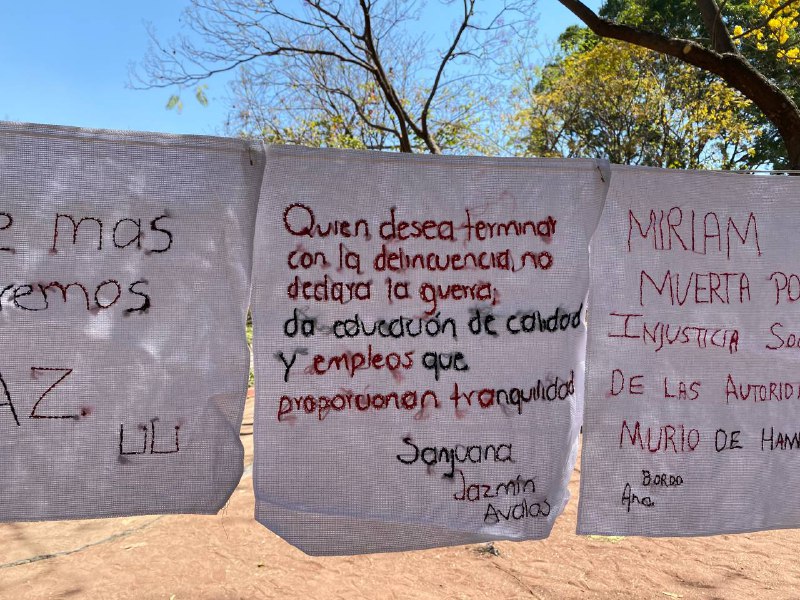 mas
remos
AZ
Quien desea terminar
con la delincuencia, no
declara la guerra;
da educación de calidad
y empleos que
proporcionan tranquilidad
Sanjuana
Jazmín
Avalos
MIRIAM
MUERTA PO
INJUSTICIA SOC
DE LAS AUTORIDA
MURIO DE HAM
BORDO
Ana.